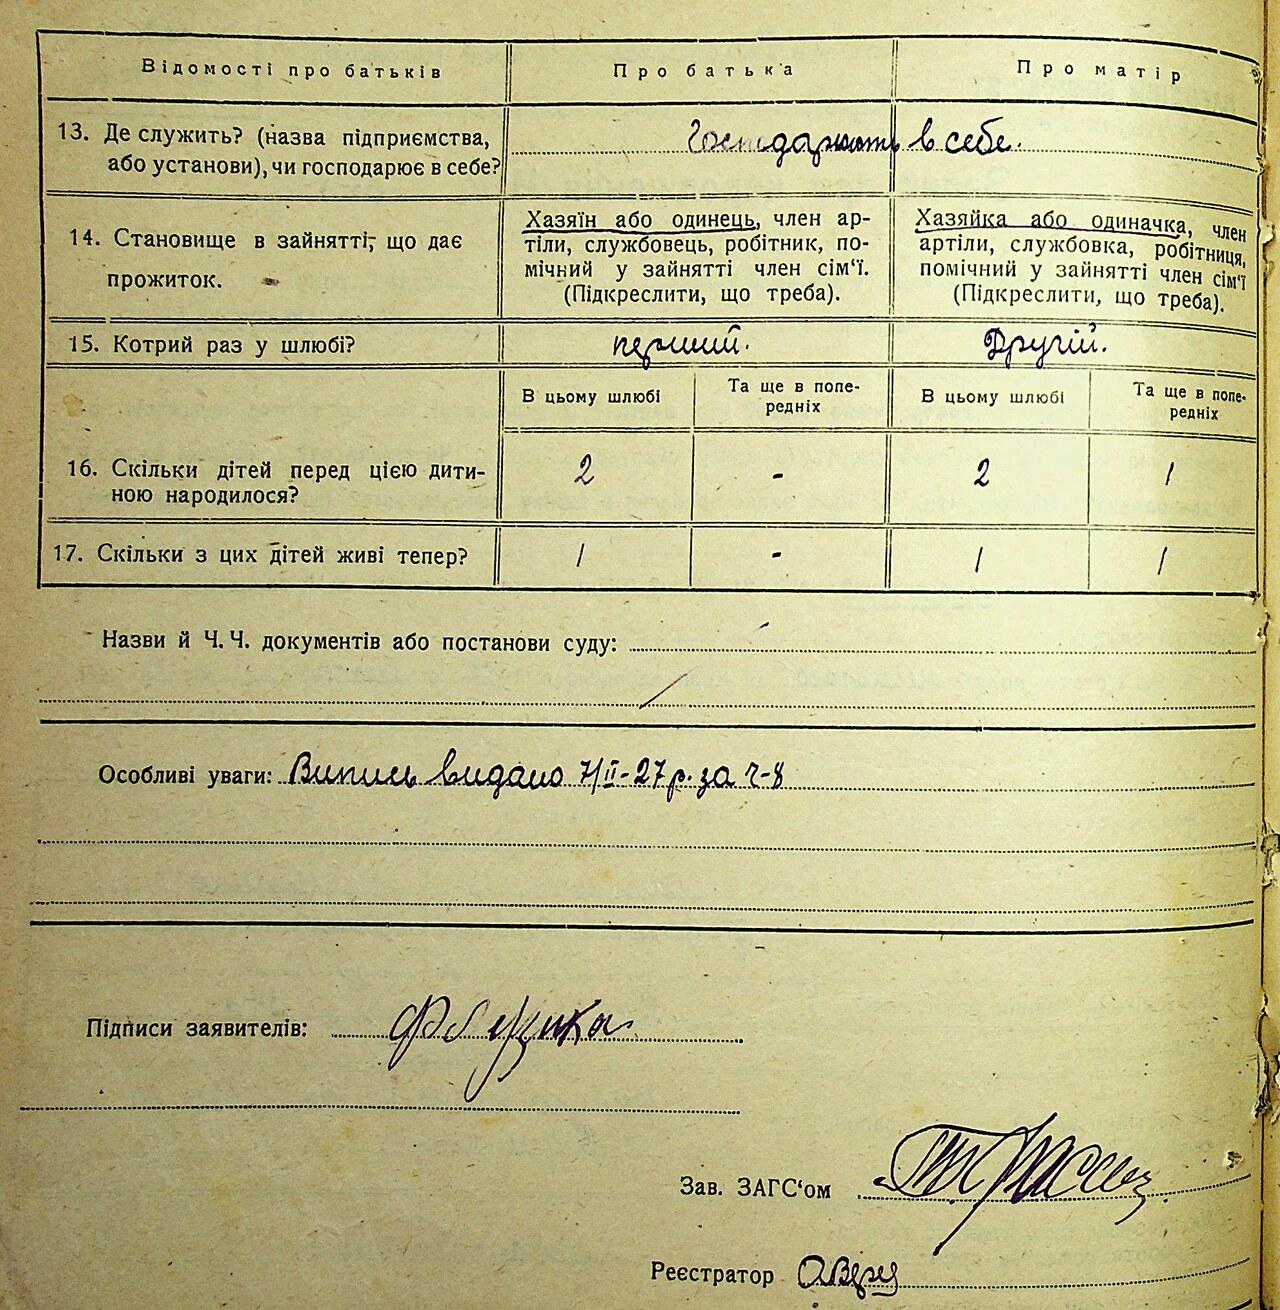 Відомості про батьків
Про батька
Про матір
13. Де служить? (назва підприємства,
або установи), чи господарює в себе?
Господарюють в себе.
14. Становище в зайнятті, що дає
прожиток.
Хазяїн або одинець, член ар-
тіли, службовець, робітник, по-
мічний у зайнятті член сім‘ї.
(Підкреслити, що треба).
Хазяйка або одиначка, член
артіли, службовка, робітниця,
помічний у зайнятті член сім‘ї
(Підкреслити, що треба).
15. Котрий раз у шлюбі?
перший.
Другій.
В цьому шлюбі
Та ще в попе-
редніх
В цьому шлюбі
Та ще в попе-
редніх
16. Скільки дітей перед цією дити-
ною народилося?
2
-
2
1
17. Скільки з цих дітей живі тепер?
1
-
1
1
Назви й Ч. Ч. документів або постанови суду:
Особливі уваги: Випись видано 7/II-27 р. за ч-8
Підписи заявителів:
Зав. ЗАГС‘ом
Реєстратор